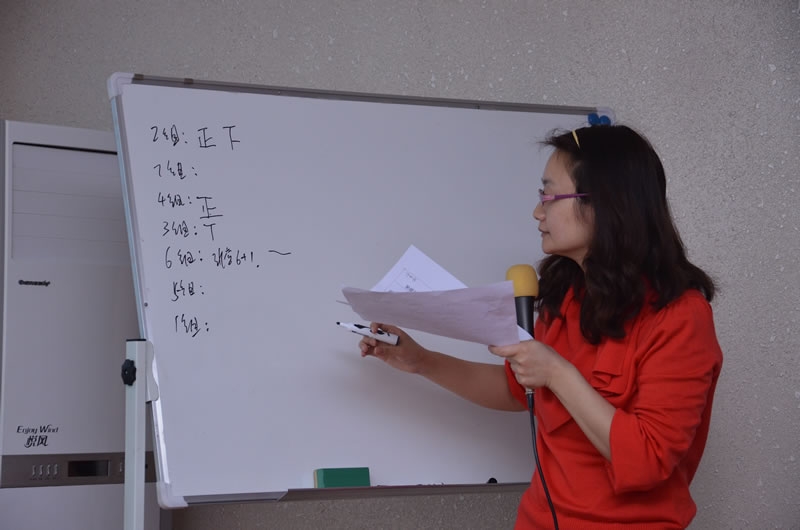 2组: 正 下
7组:
4组: 正
3组: T
6组: 6+1. 一
5组:
1组:
Enjoy Wind
悦风